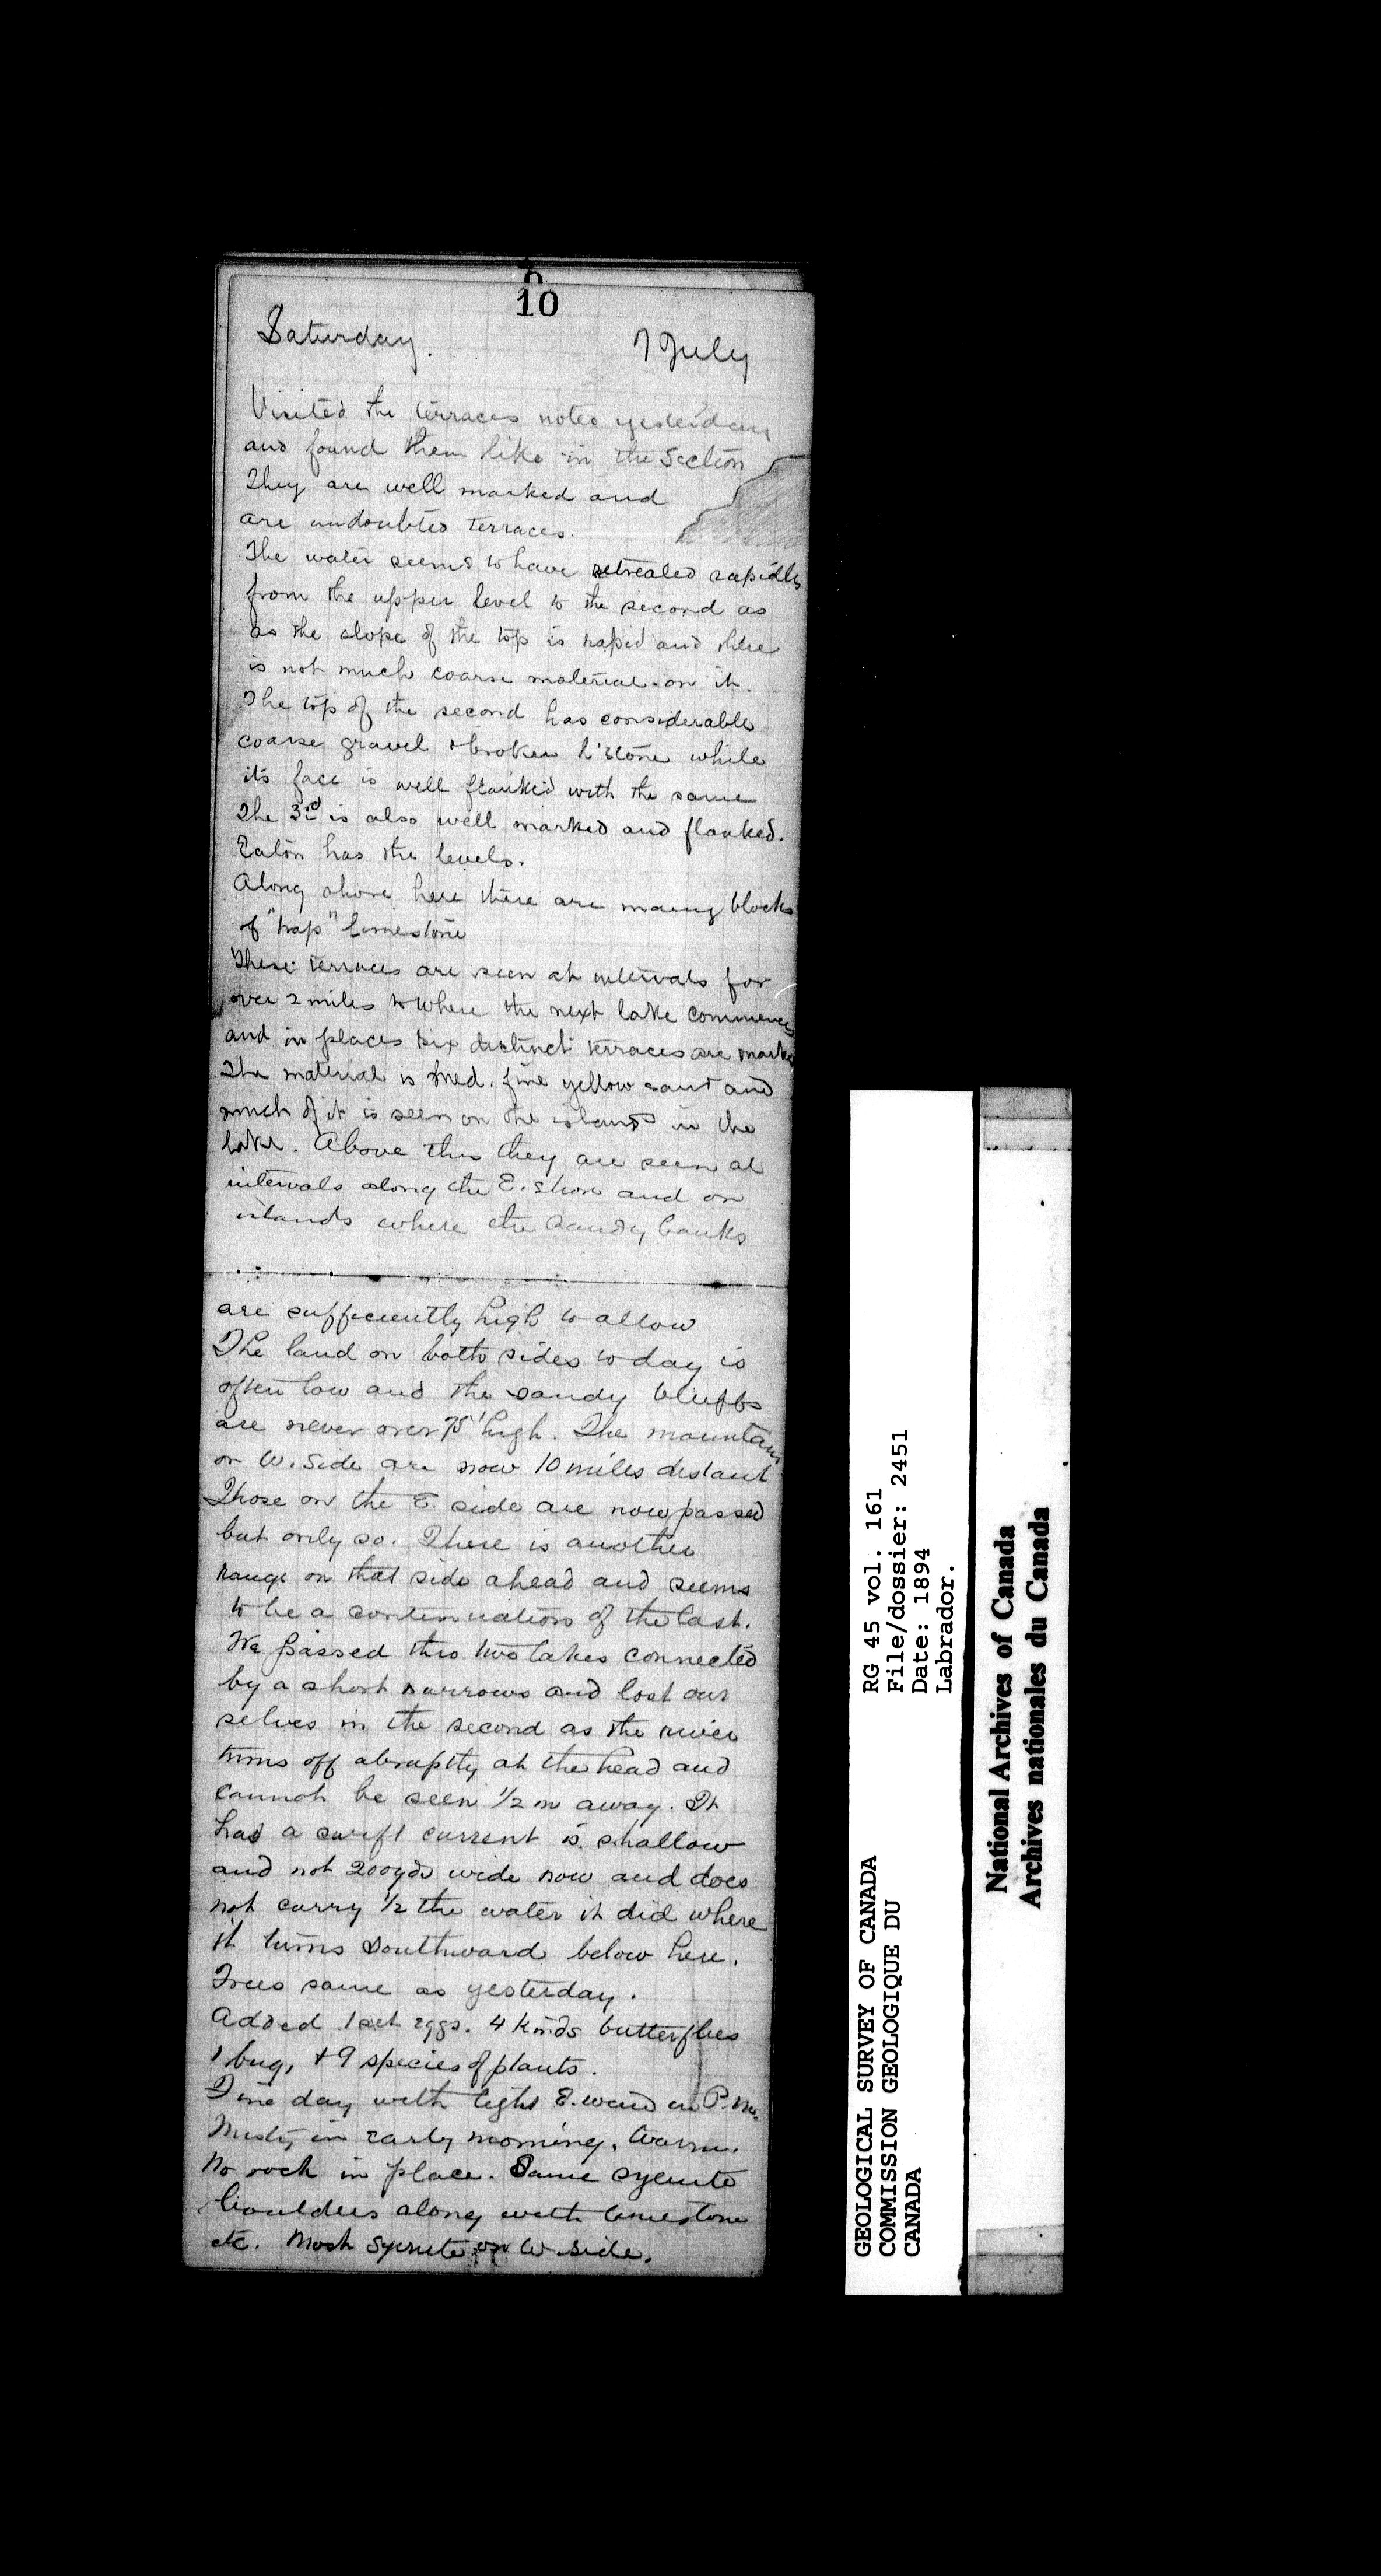 10
Saturday. 7 July
Visited the terraces noted yesterday
and found them like in the Section
They are well marked and
are undoubted terraces.
The water seems to have retreated rapidly
from the upper level to the second as
as the slope of the top is rapid and there
is not much coarse material on it.
The top of the second has considerable
coarse gravel & broken l'stone while
its face is well flanked with the same
The 3rd is also well marked and flanked.
Eaton has the levels.
Along shore here there are many blocks
of "trap" limestone
These terraces are seen at intervals for
over 2 miles to where the next lake commences
and in places six distinct terraces are marked
The material is med. fine yellow sand and
much of it is seen on the islands in the
lake. Above this they are seen at
intervals along the E. shore and on
islands where the sandy banks
are sufficiently high to allow
The land on both sides today is
often low and the sandy bluffs
are never over 75' high. The mountains
on W. side are now 10 miles distant
Those on the E. side are now passed
but only so. There is another
range on that side ahead and seems
to be a continuation of the last.
We passed thro two lakes connected
by a short narrows and lost our
selves in the second as the river
turns off abruptly at the head and
cannot be seen 1/2 m away. It
has a swift current is shallow
and not 200yds wide now and does
not carry 1/2 the water it did where
it turns southward below here.
Trees same as yesterday.
Added 1 set eggs. 4 kinds butterflies
1 bug, + 9 species of plants.
Fine day with light E. wind in P.M.
Misty in early morning. Warm.
No rock in place. Same syenite
boulders along with limestone
etc. Most syenite on W side.
GEOLOGICAL SURVEY OF CANADA
COMMISSION GEOLOGIQUE DU
CANADA
RG 45 vol. 161
File/dossier: 2451
Date: 1894
Labrador.
National Archives of Canada
Archives nationales du Canada